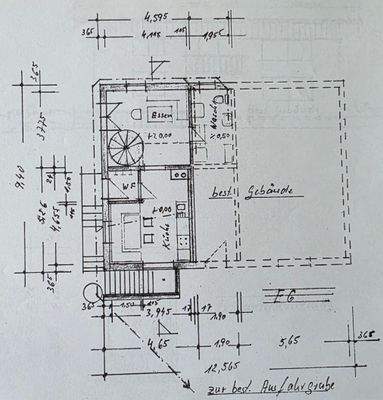 4,595
365 4,115 115 1,95
365
Essen
±0,00
Wasche
±0,50
9,40
best. Gebäude
WF
±0,00
Küche
4,655
365
EG
365 1,50 115
3,945 17 17
1,90
4,65 1,90 5,65 365
12,565
zur best. Ausfahrgrube